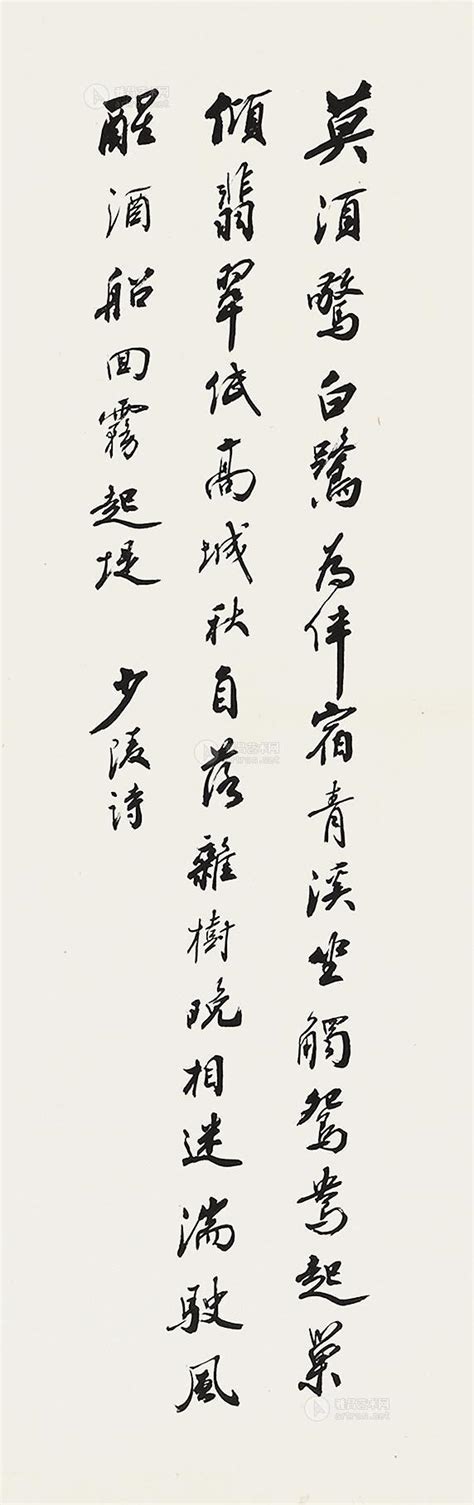 莫須驚白鷺為伴宿青溪坐觸鴛鴦起巢
傾翡翠低高城秋自落雜樹晚相迷湍駛風
醒酒船回霧起堤
少陵詩
雅昌艺术网
artron.net